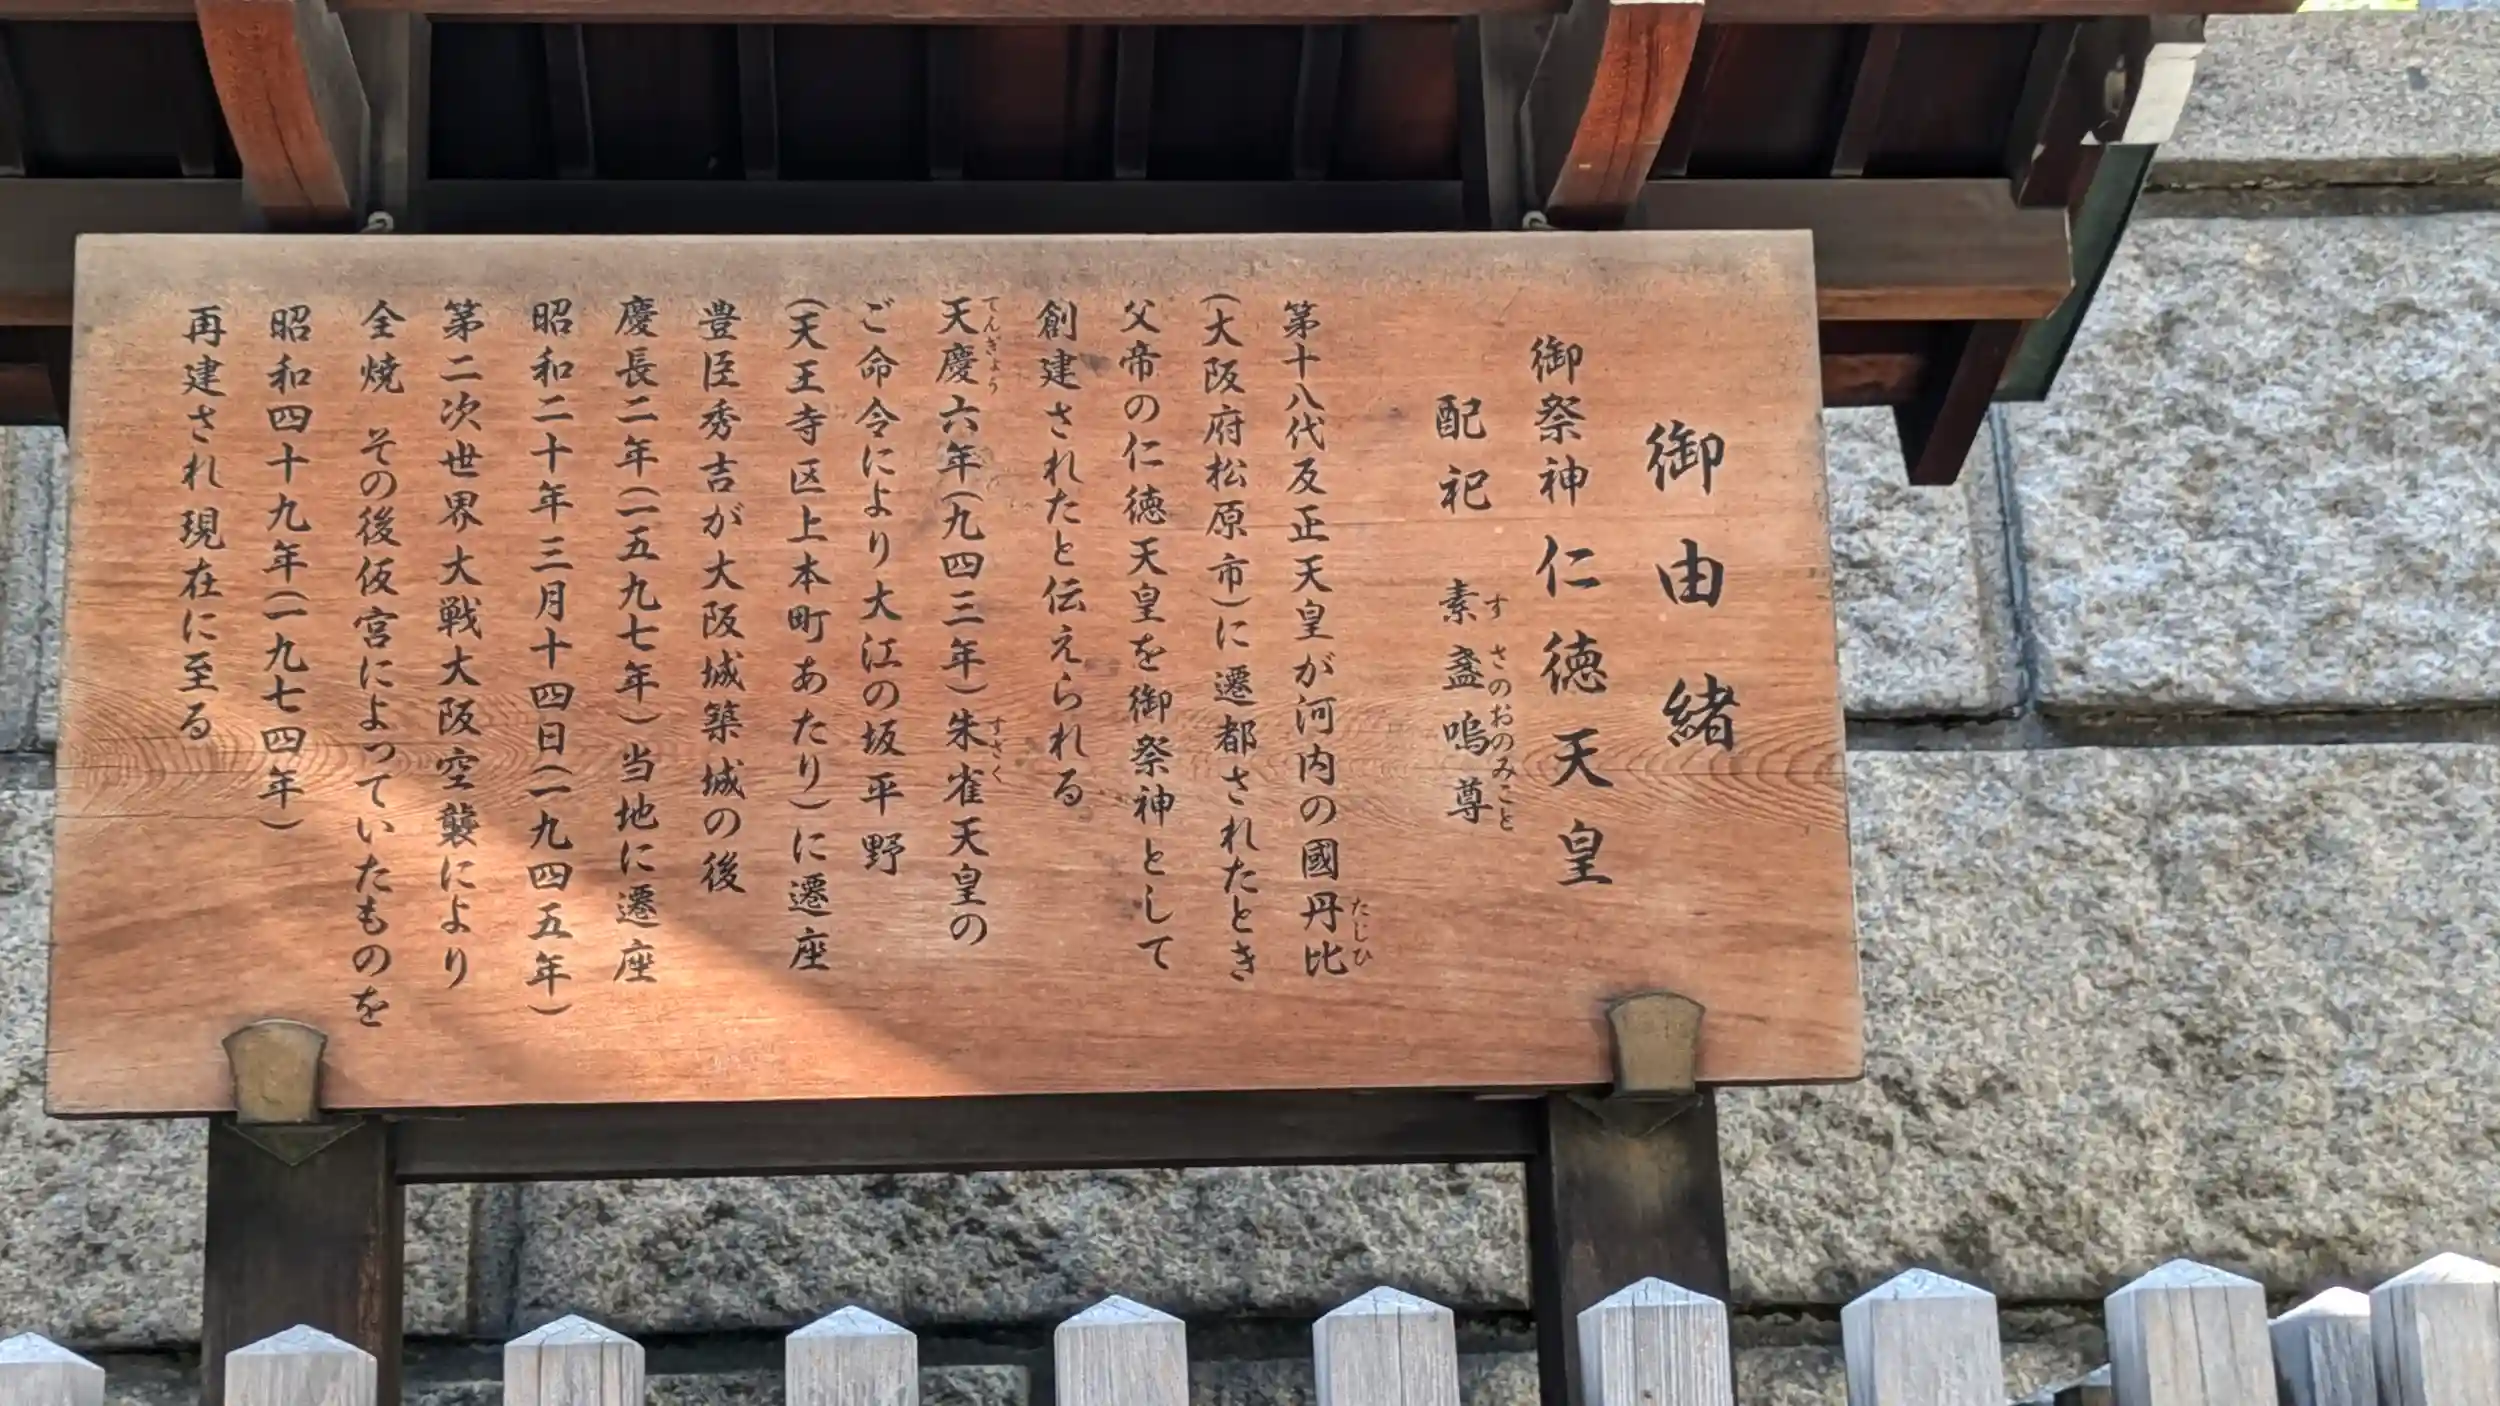 御由緒
御祭神 仁徳天皇
配祀 素盞嗚尊
すさのおのみこと
第十八代反正天皇が河内の國丹比
たじひ
(大阪府松原市)に遷都されたとき
父帝の仁徳天皇を御祭神として
創建されたと伝えられる
天慶六年(九四三年)朱雀天皇の
てんぎょう すさく
ご命令により大江の坂平野
(天王寺区上本町あたり)に遷座
豊臣秀吉が大阪城築城の後
慶長二年(一五九七年)当地に遷座
昭和二十年三月十四日(一九四五年)
第二次世界大戦大阪空襲により
全焼 その後仮宮によっていたものを
昭和四十九年(一九七四年)
再建され現在に至る